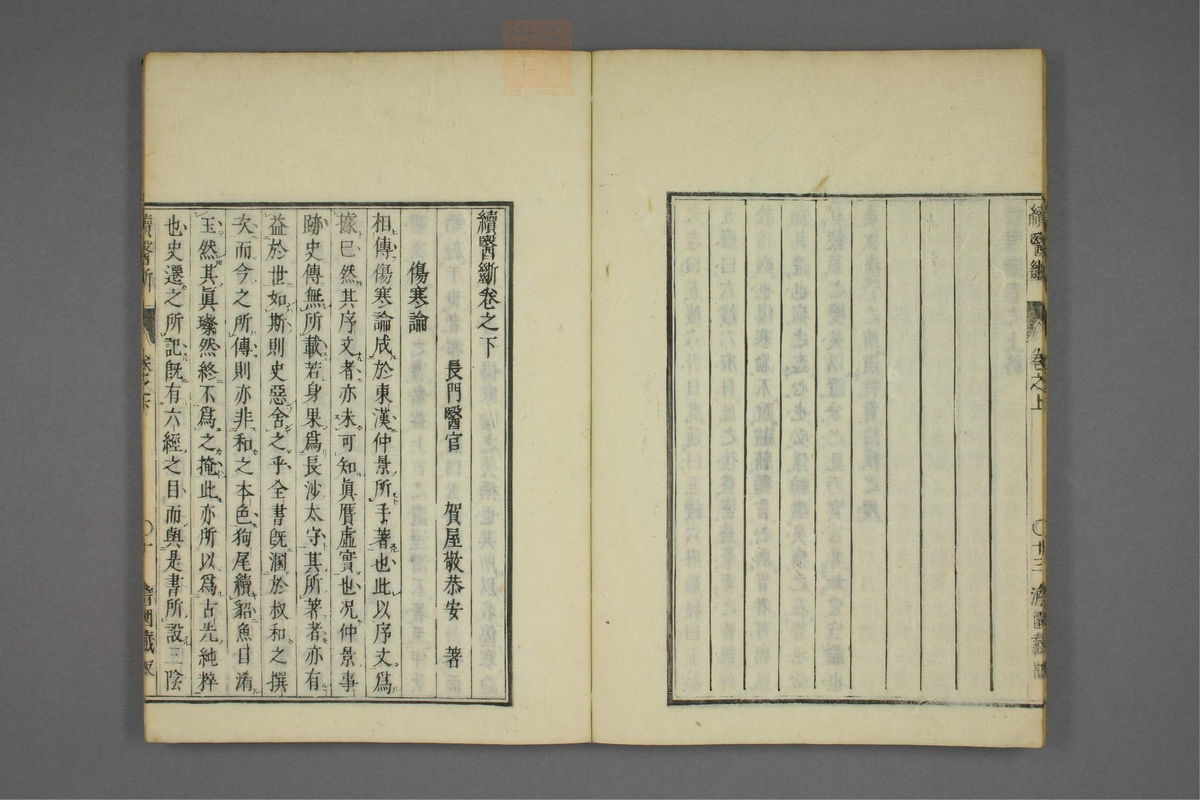 續醫斷
卷之上
〇
卅三
續醫斷卷之下
長門醫官　賀屋敬恭安　著
傷寒論
相傳傷寒論成於東漢仲景所手著也此以序文爲
據已然其序文者亦未可知眞贋虛實也况仲景事
跡史傳無所載若身果爲長沙太守其所著者亦有
益於世如斯則史惡舍之乎全書旣溷於叔和之撰
次而今之所傳則亦非和之本色狗尾續貂魚目淆
玉然其眞璨然終不爲之掩此亦所以爲古先純粹
也史遷之所記旣有六經之目而與是書所設三陰
續醫斷
卷之下
〇一